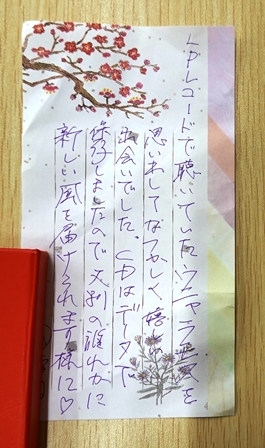 LPレコードで聴いていたシャンソンを
思い出してなつかしく嬉しい
出会いでした。CDはデータで
保存しましたので又別の誰かに
新しい風を届けられます様に♡